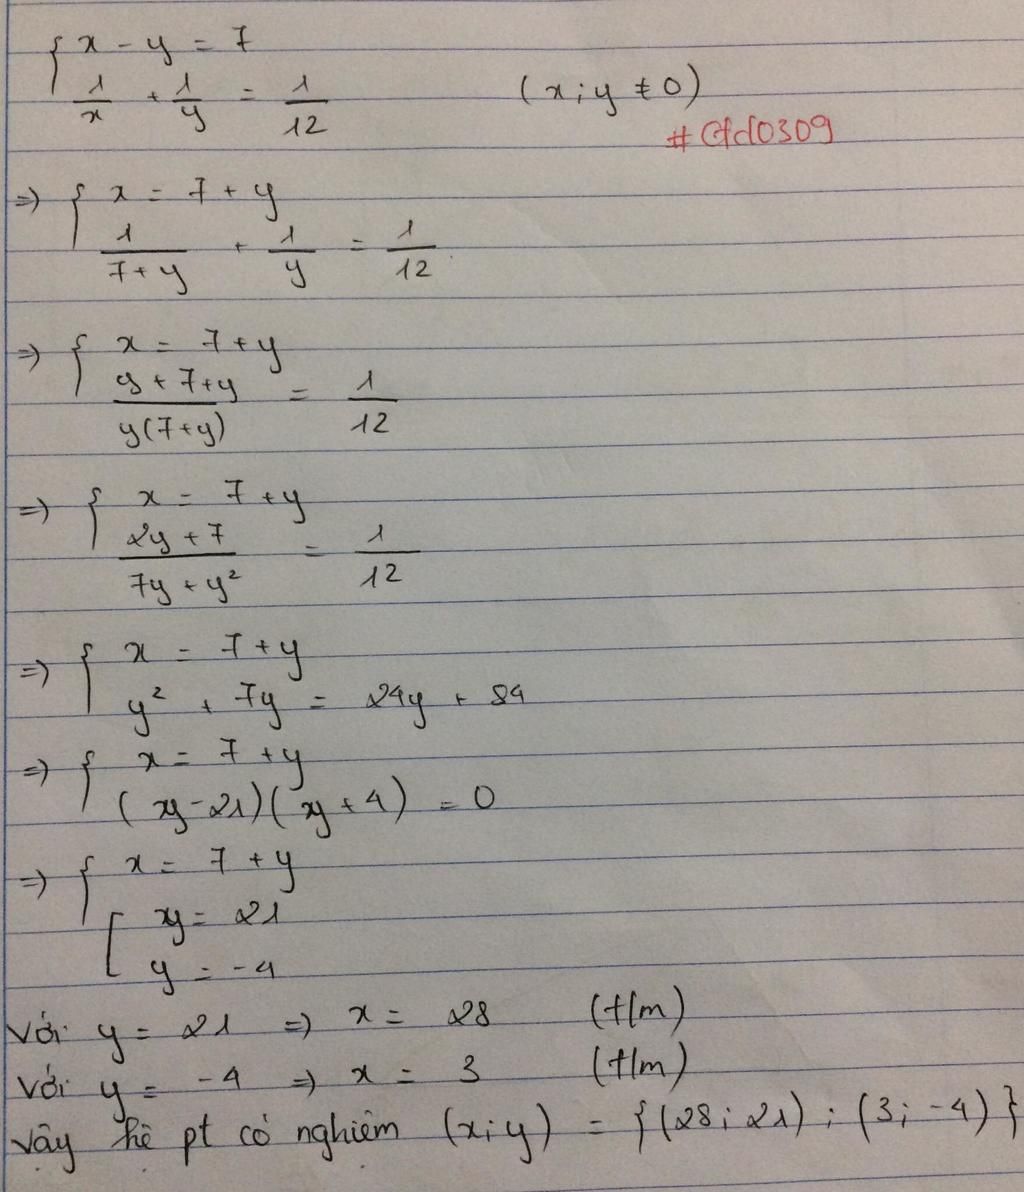 { x - y = 7
1/x + 1/y = 1/12 (x; y ≠ 0)
#Cfd0309
=> { x = 7 + y
1/(7+y) + 1/y = 1/12
=> { x = 7 + y
(y + 7 + y)/(y(7+y)) = 1/12
=> { x = 7 + y
(2y + 7)/(7y + y²) = 1/12
=> { x = 7 + y
y² + 7y = 24y + 84
=> { x = 7 + y
(y - 21)(y + 4) = 0
=> { x = 7 + y
[ y = 21
y = -4
Với y = 21 => x = 28 (t/m)
Với y = -4 => x = 3 (t/m)
Vậy hệ pt có nghiệm (x; y) = {(28; 21); (3; -4)}